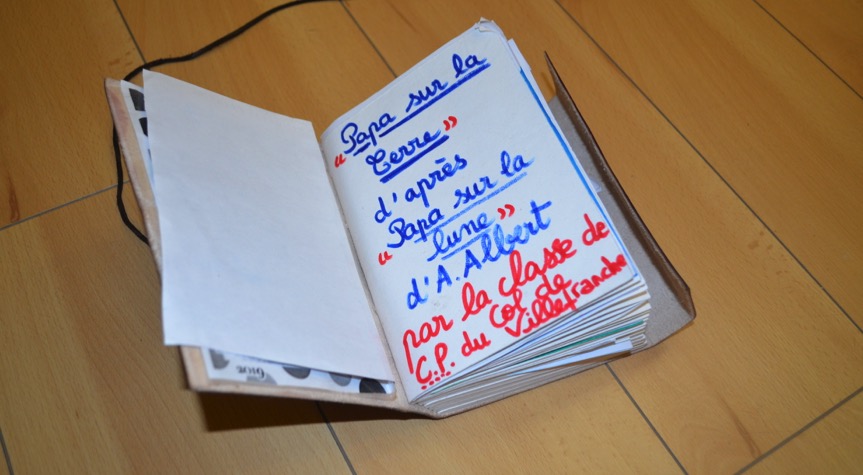 "Papa sur la
Terre"
d'après
"Papa sur la
lune"
d'A. Albert
par la classe de
C.P. du Col de
Villefranche